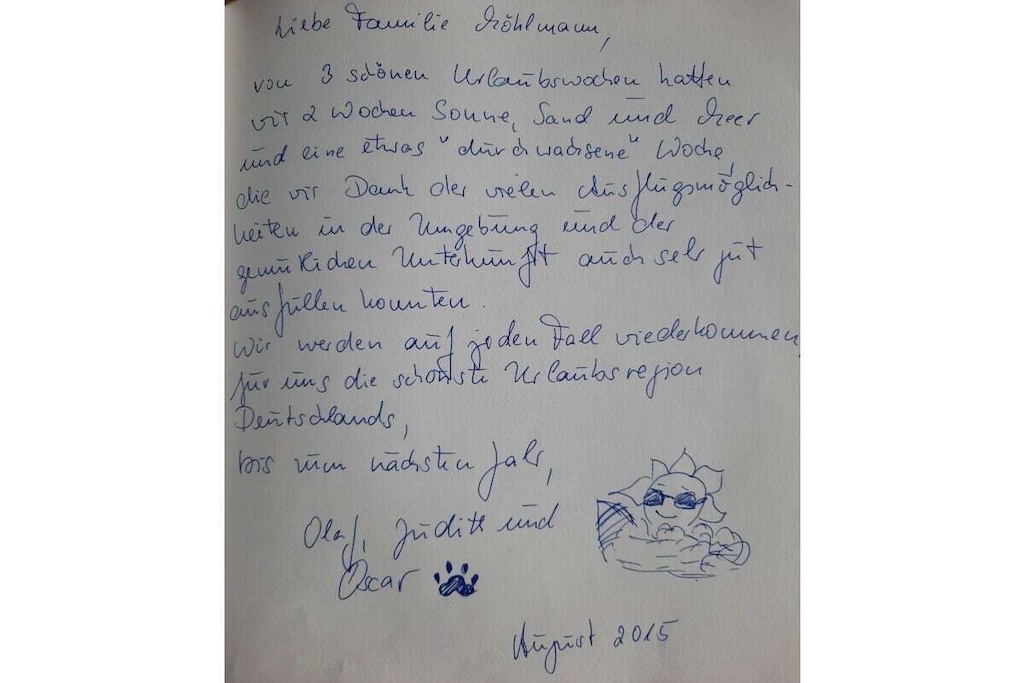 Liebe Familie Möhlmann,
von 3 schönen Urlaubswochen hatten
wir 2 Wochen Sonne, Sand und Meer
und eine etwas "durchwachsene" Woche,
die wir Dank der vielen Ausflugsmöglich-
keiten in der Umgebung und der
gemütlichen Unterkunft auch sehr gut
ausfüllen konnten.
Wir werden auf jeden Fall wiederkommen,
für uns die schönste Urlaubsregion
Deutschlands,
bis zum nächsten Jahr,
Olaf, Judith und
Oscar
August 2015